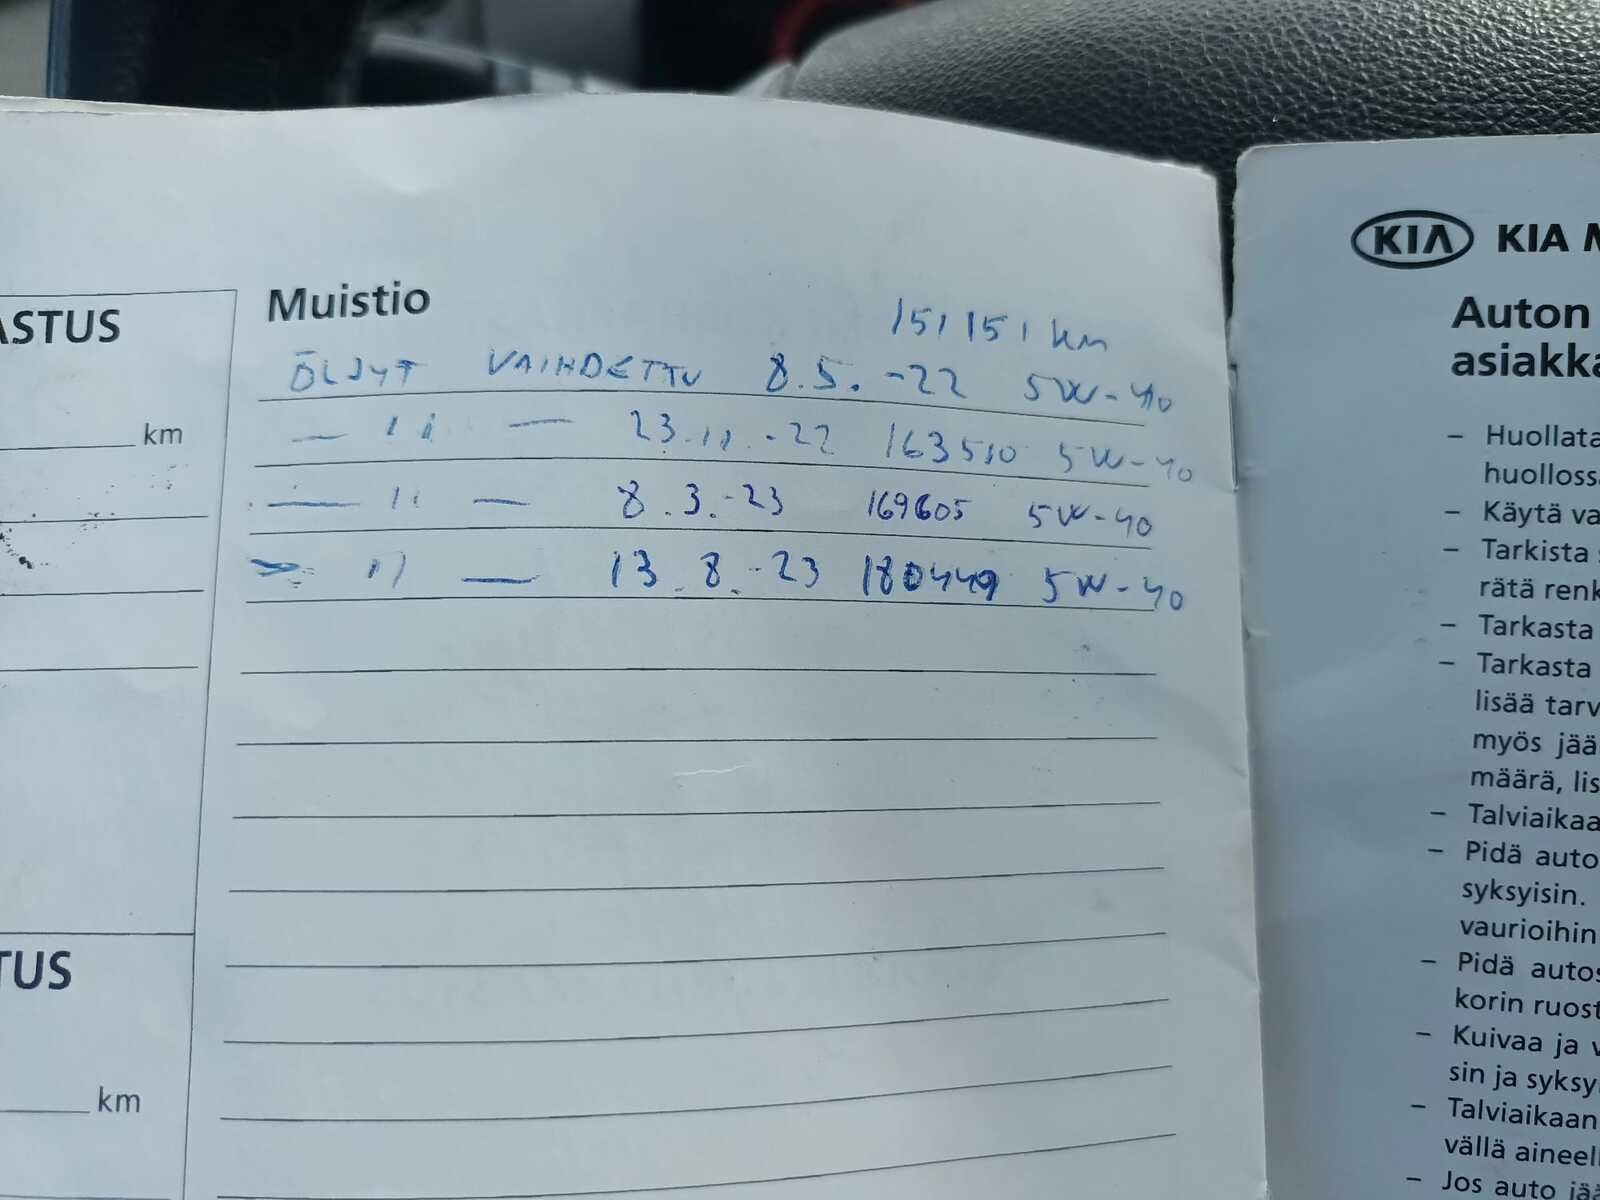 ASTUS
km
TUS
km
Muistio
151151 km
ÖLJYT VAIHDETTU 8.5.-22 5W-40
— 11 — 23.11.-22 163510 5W-40
— 11 — 8.3.-23 169605 5W-40
— 11 — 13.8.-23 180449 5W-40
KIA KIA M
Auton
asiakka
– Huollata
huolloss
– Käytä va
– Tarkista s
rätä renk
– Tarkasta
– Tarkasta
lisää tarv
myös jää
määrä, lis
– Talviaikaa
– Pidä auto
syksyisin.
vaurioihin
– Pidä autos
korin ruost
– Kuivaa ja v
sin ja syksy
– Talviaikaan
vällä aineel
– Jos auto jää